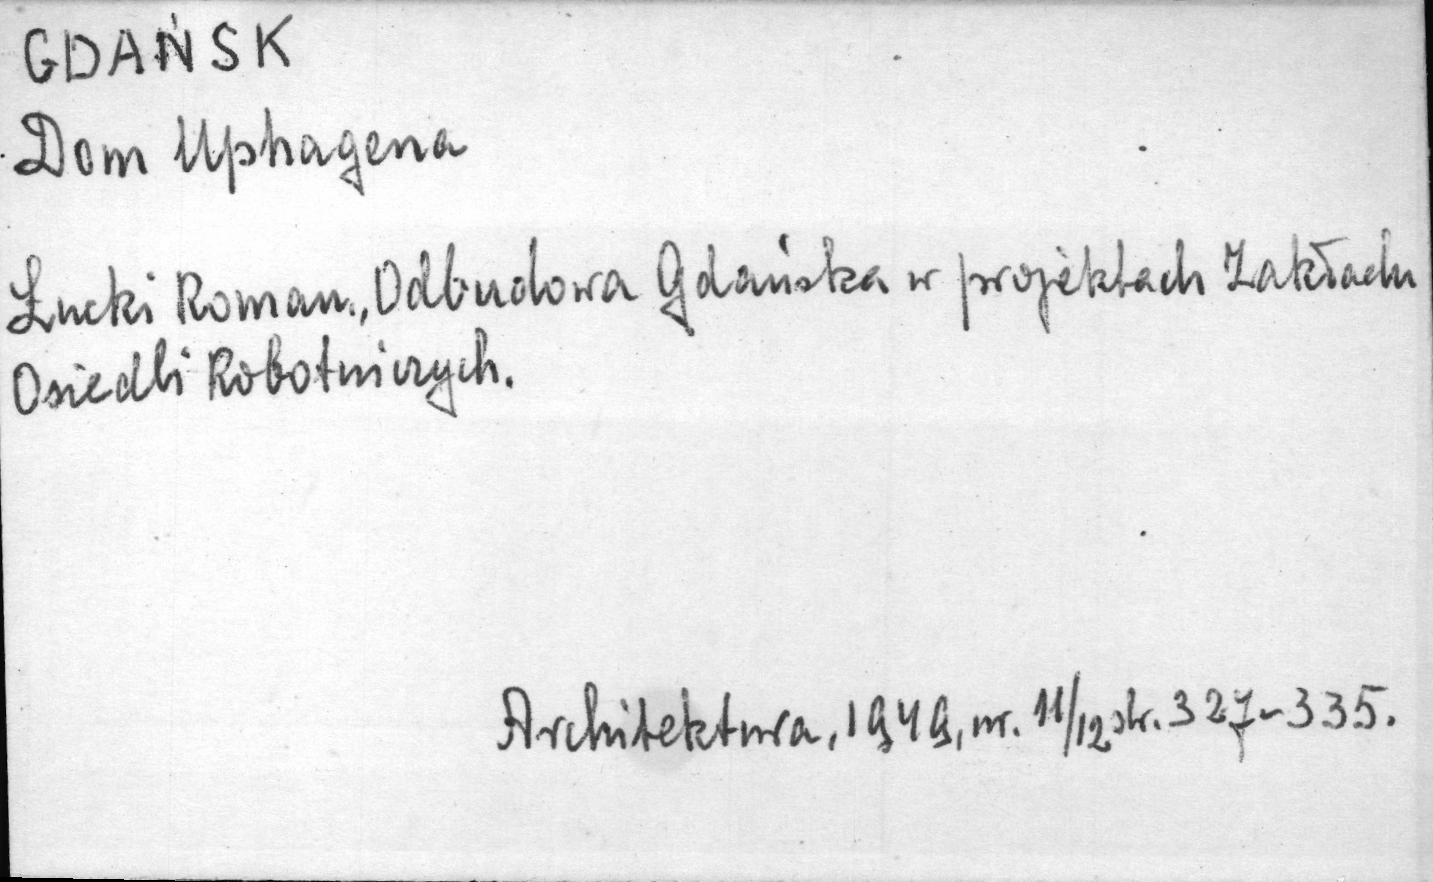 GDAŃSK
Dom Uphagena
Łucki Roman., Odbudowa Gdańska w projektach Zakładu
Osiedli Robotniczych.
Architektura, 1949, nr. 11/12 str. 327-335.